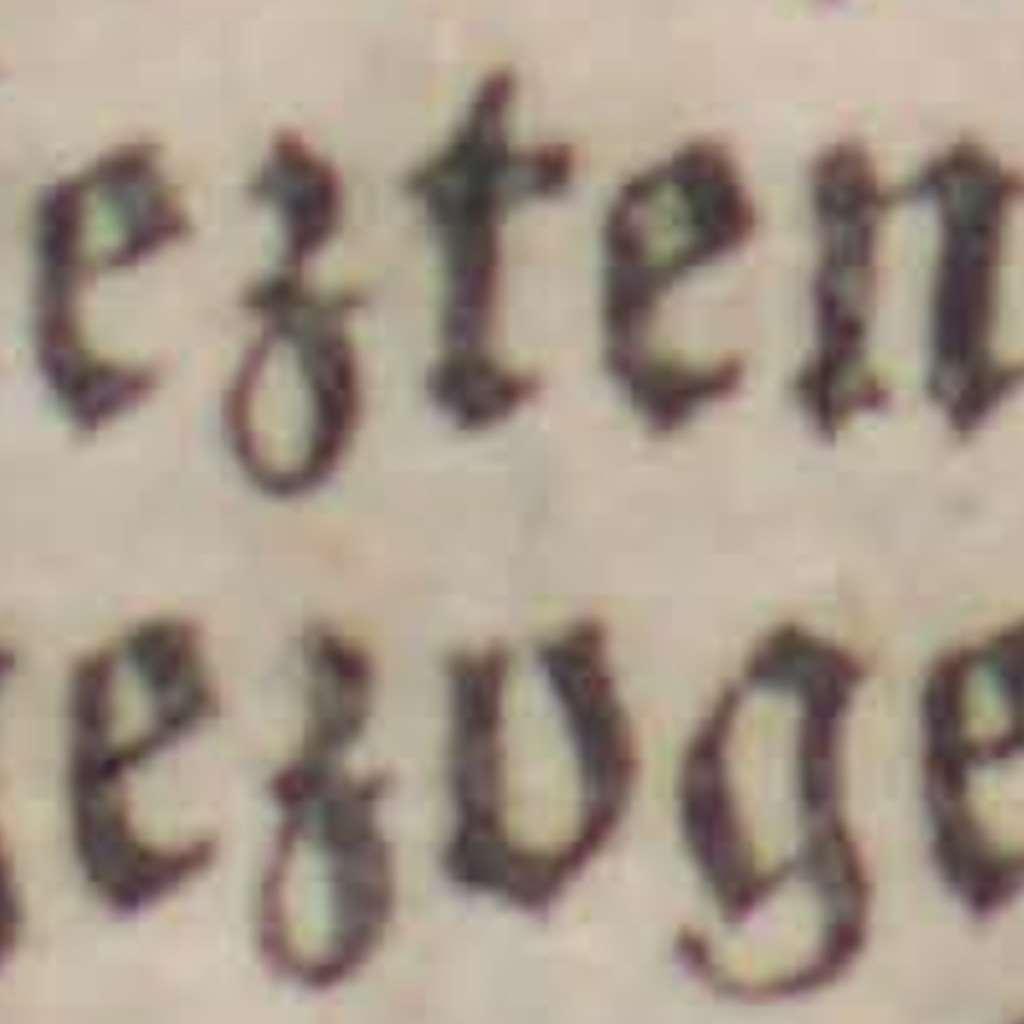 ezten
ezvge